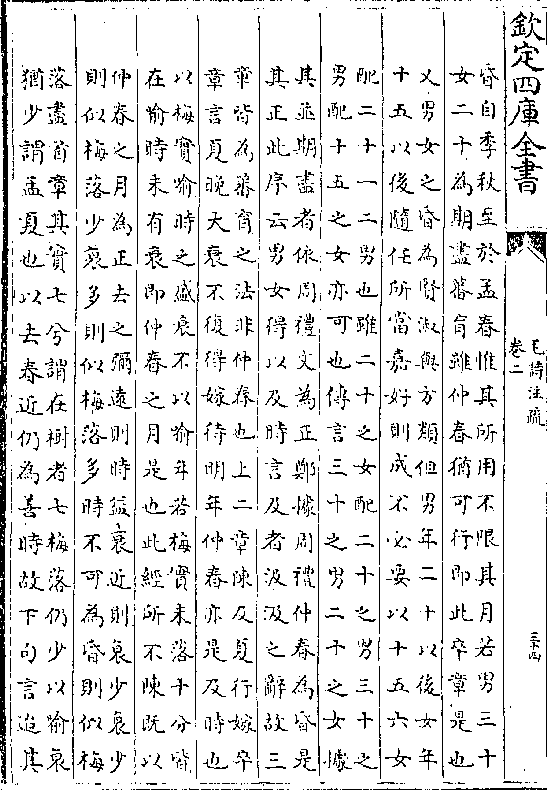 欽定四庫全書
毛詩注疏
卷二
三十四
昏自季秋至於孟春惟其所用不限其月若男三十
女二十為期盡蕃育雖仲春猶可行即此卒章是也
又男女之昏為賢淑與方類但男年二十以後女年
十五以後隨任所當嘉好則成不必要以十五六女
配二十一二男也雖二十之女配二十之男三十之
男配十五之女亦可也傳言三十之男二十之女據
其並期盡者依周禮文為正鄭據周禮仲春為昏是
其正此序云男女得以及時言及者汲汲之辭故三
章皆為蕃育之法非仲春也上二章陳及夏行嫁卒
章言夏晚大衰不復得嫁待明年仲春亦是及時也
以梅實喻時之盛衰不以喻年若梅實未落十分皆
在喻時未有衰即仲春之月是也此經所不陳既以
仲春之月為正去之彌遠則時益衰近則衰少衰少
則似梅落少衰多則似梅落多時不可為昏則似梅
落盡首章其實七兮謂在樹者七梅落仍少以喻衰
猶少謂孟夏也以去春近仍為善時故下句言迨其